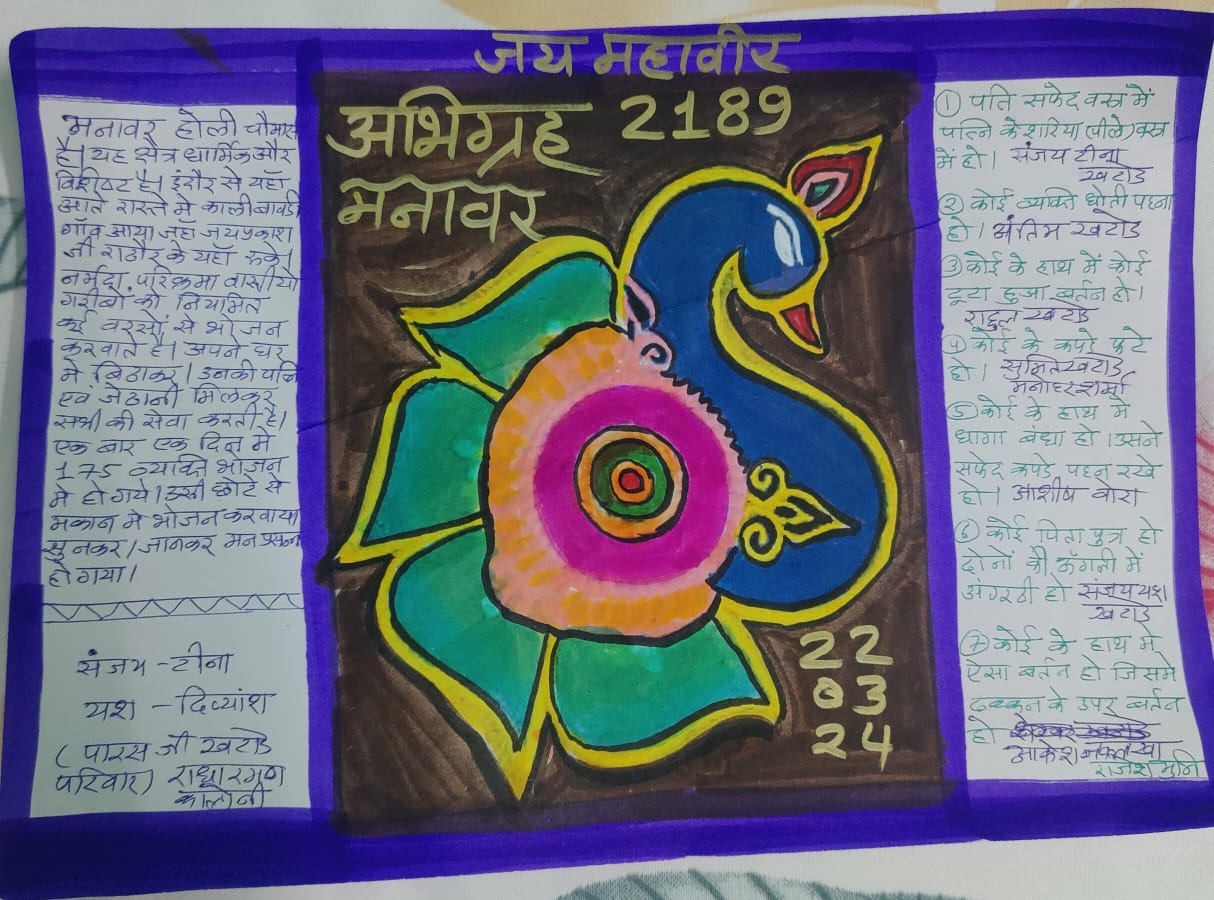 जय महावीर
अभिग्रह 2189
मनावर
मनावर होली चौमासा
है। यह क्षैत्र धार्मिक और
विशीष्ट है। इंदौर से यहाँ
आते रास्ते मे कालीबावडी
गाँव आया जहा जयप्रकाश
जी राठौर के यहाँ रुके।
नर्मदा परिक्रमा वासीयो
गरीबो को नियमित
कई वरसों से भोजन
करवाते है। अपने घर
मे बिठाकर। उनकी पत्नि
एवं जेठानी मिलकर
सभी की सेवा करती है।
एक बार एक दिन मे
175 व्यक्ति भोजन
मे हो गये। उसी छोटे से
मकान मे भोजन करवाया
सुनकर / जानकर मन प्रसन्न
हो गया।
संजय - टीना
यश - दिव्यांश
( पारस जी खटोड
परिवार) राधारमण
कालोनी
22
03
24
① पति सफेद वस्त्र में
पत्नि केशरिया (पीले) वस्त्र
में हो। संजय टीना
खटोड
② कोई व्यक्ति धोती पहना
हो। अंतिम खटोड
③ कोई के हाथ में कोई
टूटा हुआ बर्तन हो।
राहुल खटोड
④ कोई के कपडे फटे
हो। सुमित खटोड
मनोहर शर्मा
⑤ कोई के हाथ मे
धागा बंधा हो। उसने
सफेद कपडे पहन रखे
हो। आशीष बोरा
⑥ कोई पिता पुत्र हो
दोनों की ऊँगली में
अंगूठी हो संजय यश
खटोड
⑦ कोई के हाथ मे
ऐसा बर्तन हो जिसमे
ढक्कन के उपर बर्तन
हो
आकेश
राजेश मुनि